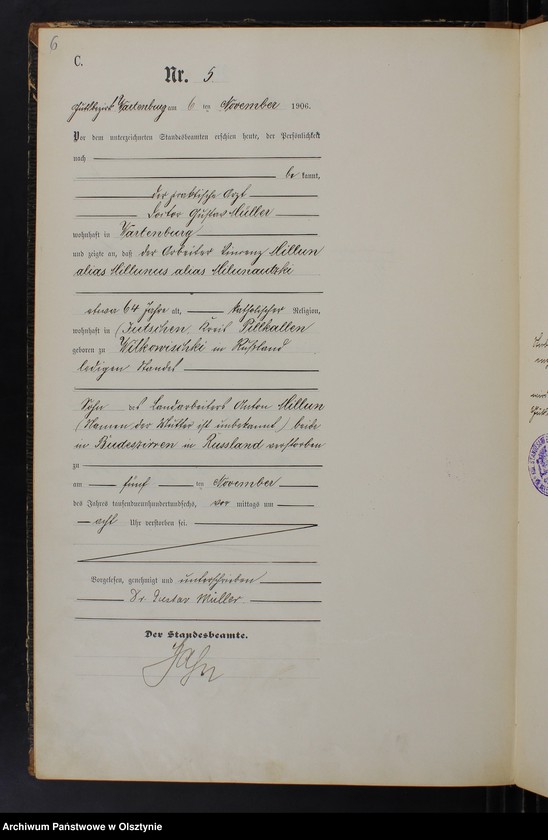 6
C.
Nr. 5
Gutsbezirk Wartenburg am 6 ten November 1906.
Vor dem unterzeichneten Standesbeamten erschien heute, der Persönlichkeit
nach
be kannt,
der praktische Arzt
Doctor Gustav Müller
wohnhaft in Wartenburg
und zeigte an, daß der Arbeiter Vincenz Millun
alias Millunus alias
etwa 64 Jahre alt, katholischer Religion,
wohnhaft in Kreis Pillkallen
geboren zu Wilkowischki in Rußland
ledigen Standes
Sohn des Landarbeiters Anton Millun
(Namen der Mutter ist unbekannt) beide
in in Russland verstorben
zu
am fünf ten November
des Jahres tausendneunhundertundsechs, vor mittags um
acht Uhr verstorben sei.
Vorgelesen, genehmigt und unterschrieben
Dr Gustav Müller
Der Standesbeamte.
Jahn
Archiwum Państwowe w Olsztynie